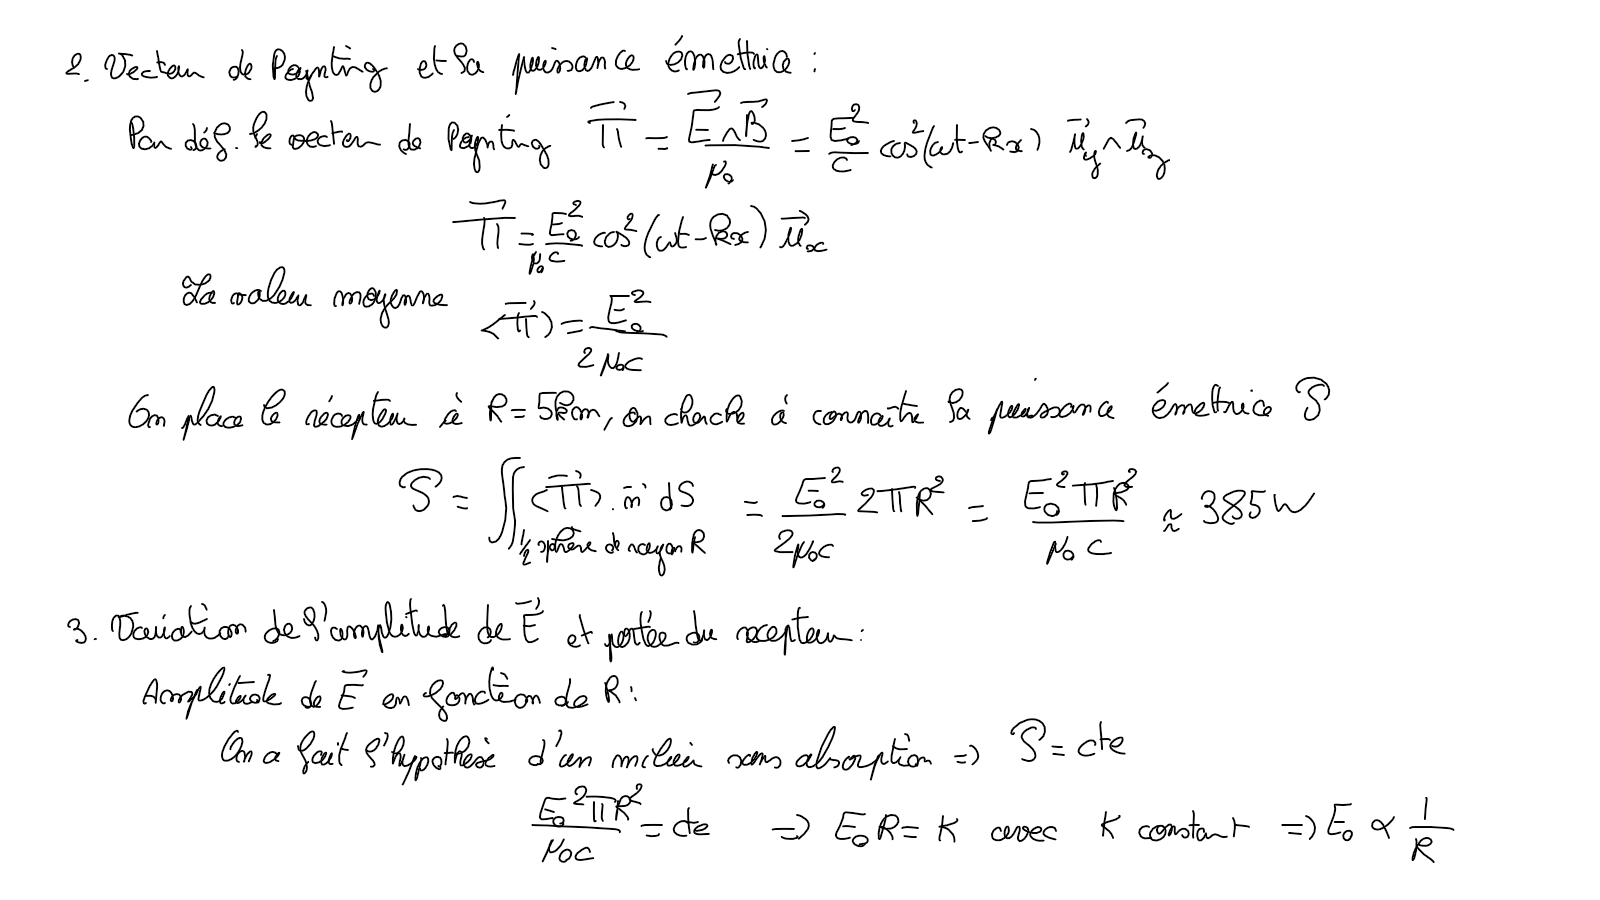 2. Vecteur de Poynting et la puissance émettrice :
Par déf. le vecteur de Poynting $\vec{\Pi} = \frac{\vec{E} \wedge \vec{B}}{\mu_0} = \frac{E_0^2}{c} \cos^2(\omega t - kx) \vec{u}_y \wedge \vec{u}_z$
$\vec{\Pi} = \frac{E_0^2}{\mu_0 c} \cos^2(\omega t - kx) \vec{u}_x$
La valeur moyenne $\langle \vec{\Pi} \rangle = \frac{E_0^2}{2 \mu_0 c}$
On place le récepteur à R = 5km, on cherche à connaître la puissance émettrice $\mathcal{P}$
$\mathcal{P} = \iint_{1/2 \text{ sphère de rayon } R} \langle \vec{\Pi} \rangle . \vec{n} \, dS = \frac{E_0^2}{2 \mu_0 c} 2 \pi R^2 = \frac{E_0^2 \pi R^2}{\mu_0 c} \approx 385 W$
3. Variation de l'amplitude de $\vec{E}$ et portée du recepteur :
Amplitude de $\vec{E}$ en fonction de R :
On a fait l'hypothèse d'un milieu sans absorption => $\mathcal{P}$ = cte
$\frac{E_0^2 \pi R^2}{\mu_0 c}$ = cte => $E_0 R = K$ avec K constant => $E_0 \propto \frac{1}{R}$